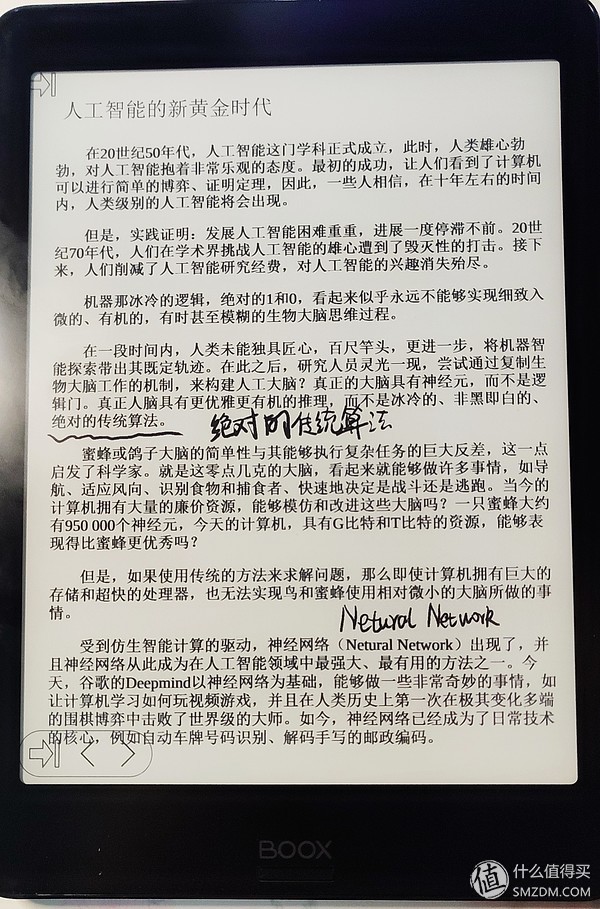 人工智能的新黄金时代
在20世纪50年代，人工智能这门学科正式成立，此时，人类雄心勃
勃，对人工智能抱着非常乐观的态度。最初的成功，让人们看到了计算机
可以进行简单的博弈、证明定理，因此，一些人相信，在十年左右的时间
内，人类级别的人工智能将会出现。
但是，实践证明：发展人工智能困难重重，进展一度停滞不前。20世
纪70年代，人们在学术界挑战人工智能的雄心遭到了毁灭性的打击。接下
来，人们削减了人工智能研究经费，对人工智能的兴趣消失殆尽。
机器那冰冷的逻辑，绝对的1和0，看起来似乎永远不能够实现细致入
微的、有机的，有时甚至模糊的生物大脑思维过程。
在一段时间内，人类未能独具匠心，百尺竿头，更进一步，将机器智
能探索带出其既定轨迹。在此之后，研究人员灵光一现，尝试通过复制生
物大脑工作的机制，来构建人工大脑？真正的大脑具有神经元，而不是逻
辑门。真正人脑具有更优雅更有机的推理，而不是冰冷的、非黑即白的、
绝对的传统算法。
绝对的传统算法
蜜蜂或鸽子大脑的简单性与其能够执行复杂任务的巨大反差，这一点
启发了科学家。就是这零点几克的大脑，看起来就能够做许多事情，如导
航、适应风向、识别食物和捕食者、快速地决定是战斗还是逃跑。当今的
计算机拥有大量的廉价资源，能够模仿和改进这些大脑吗？一只蜜蜂大约
有950 000个神经元，今天的计算机，具有G比特和T比特的资源，能够表
现得比蜜蜂更优秀吗？
但是，如果使用传统的方法来求解问题，那么即使计算机拥有巨大的
存储和超快的处理器，也无法实现鸟和蜜蜂使用相对微小的大脑所做的事
情。
Netural Network
受到仿生智能计算的驱动，神经网络（Netural Network）出现了，并
且神经网络从此成为在人工智能领域中最强大、最有用的方法之一。今
天，谷歌的Deepmind以神经网络为基础，能够做一些非常奇妙的事情，如
让计算机学习如何玩视频游戏，并且在人类历史上第一次在极其变化多端
的围棋博弈中击败了世界级的大师。如今，神经网络已经成为了日常技术
的核心，例如自动车牌号码识别、解码手写的邮政编码。
BOOX
值 什么值得买
SMZDM.COM